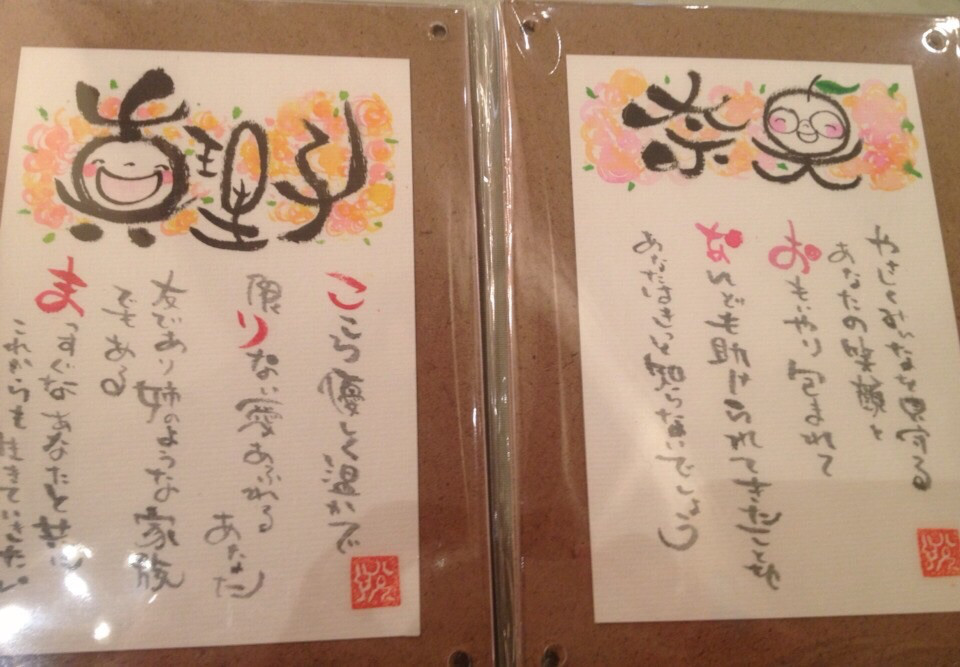 真里子
こころ優しく温かで
限りない愛あふれる
あなた
友であり姉のような家族
でもある
まっすぐなあなたと共に
これからも生きていきたい
奈央
やさしく 見守る
あなたの笑顔と
おもいやり包まれて
なんども助けられてきたことを
あなたはきっと知らないでしょう